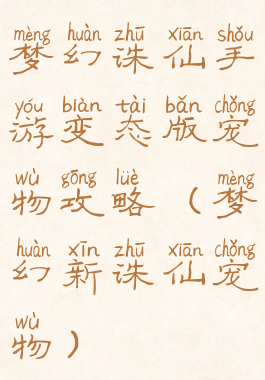 mèng huàn zhū xiān shǒu
梦幻诛仙手
yóu biàn tài bǎn chǒng
游变态版宠
wù gōng lüè mèng
物攻略（梦
huàn xīn zhū xiān chǒng
幻新诛仙宠
wù
物）